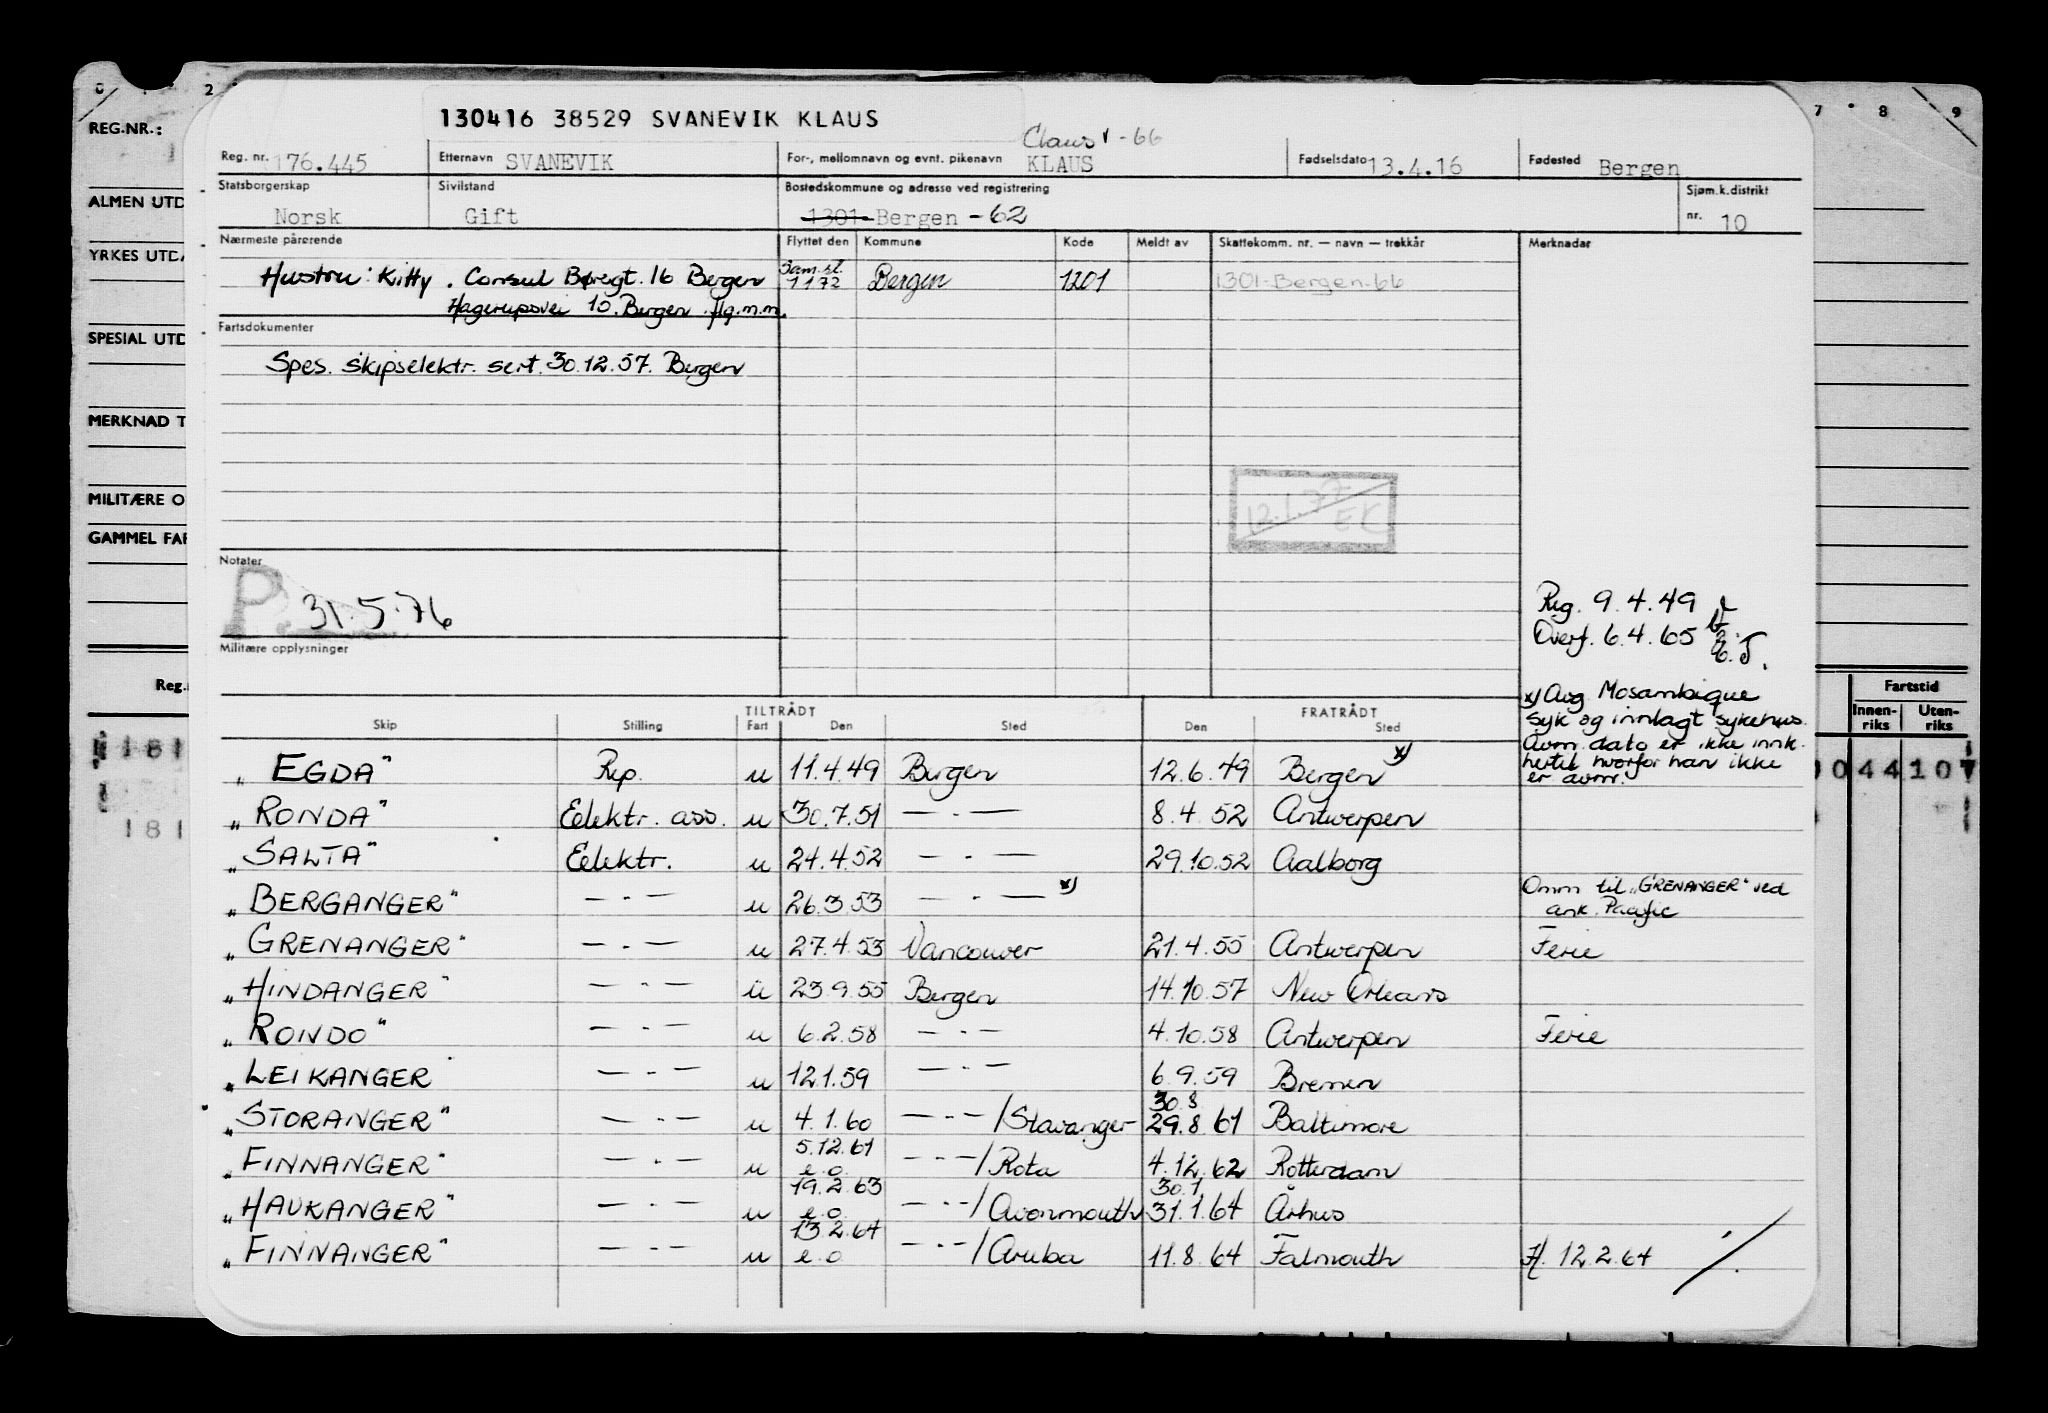 0 2 7 8 9
130416 38529 SVANEVIK KLAUS
REG.NR.:
Claus -66
Reg. nr. 176.445 Etternavn SVANEVIK For-, mellomnavn og evnt. pikenavn KLAUS Fødselsdato 13.4.16 Fødested Bergen
Statsborgerskap Sivilstand Bostedskommune og adresse ved registrering Sjøm.k.distrikt
ALMEN UTD
Norsk Gift 1301-Bergen -62 nr. 10
Nærmeste pårørende Flyttet den Kommune Kode Meldt av Skattekomm. nr. — navn — trekkår Merknadar
YRKES UTDA
Hustru: Kitty . Consul Børsgt. 16 Bergen 1 1 72 Bergen 1201 1301-Bergen-66
Hagerupsvei 10. Bergen flg.m.m.
Fartsdokumenter
SPESIAL UTD
Spes. skipselektr. sert. 30.12.57. Bergen
MERKNAD T
MILITÆRE O
12.1.77 EK
GAMMEL FAR
Notater
P. 31.5.76
Reg. 9.4.49
Overf. 6.4.65 E.J.
Militære opplysninger
Reg.
Fartstid
Innen-riks Uten-riks
x) Avg Mosambique
syk og innlagt sykehus.
Avm. dato er ikke innk.
hertil hvorfor han ikke
er avm.
TILTRÅDT FRATRÅDT
Skip Stilling Fart Den Sted Den Sted
181 0044 107
"EGDA" Rep. u 11.4.49 Bergen 12.6.49 Bergen x)
"RONDA" Elektr. ass. u 30.7.51 — . — 8.4.52 Antwerpen
181
"SALTA" Elektr. u 24.4.52 — . — 29.10.52 Aalborg
"BERGANGER" — . — u 26.3.53 — . — x) Omm til "GRENANGER" ved
ank. Pacific
"GRENANGER" — . — u 27.4.53 Vancouver 21.4.55 Antwerpen Ferie
"HINDANGER" — . — u 23.9.55 Bergen 14.10.57 New Orleans
"RONDO" — . — u 6.2.58 — . — 4.10.58 Antwerpen Ferie
"LEIKANGER — . — u 12.1.59 — . — 6.9.59 Bremen
30.8
"STORANGER" — . — u 4.1.60 — . — /Stavanger 29.8.61 Baltimore
5.12.61
"FINNANGER" — . — u e.o. — . — /Rota 4.12.62 Rotterdam
19.2.63 30.1
"HAUKANGER" — . — u e.o. — . — /Avonmouth 31.1.64 Århus
13.2.64
"FINNANGER" — . — u e.o. — . — /Aruba 11.8.64 Falmouth Fl. 12.2.64 ·/.